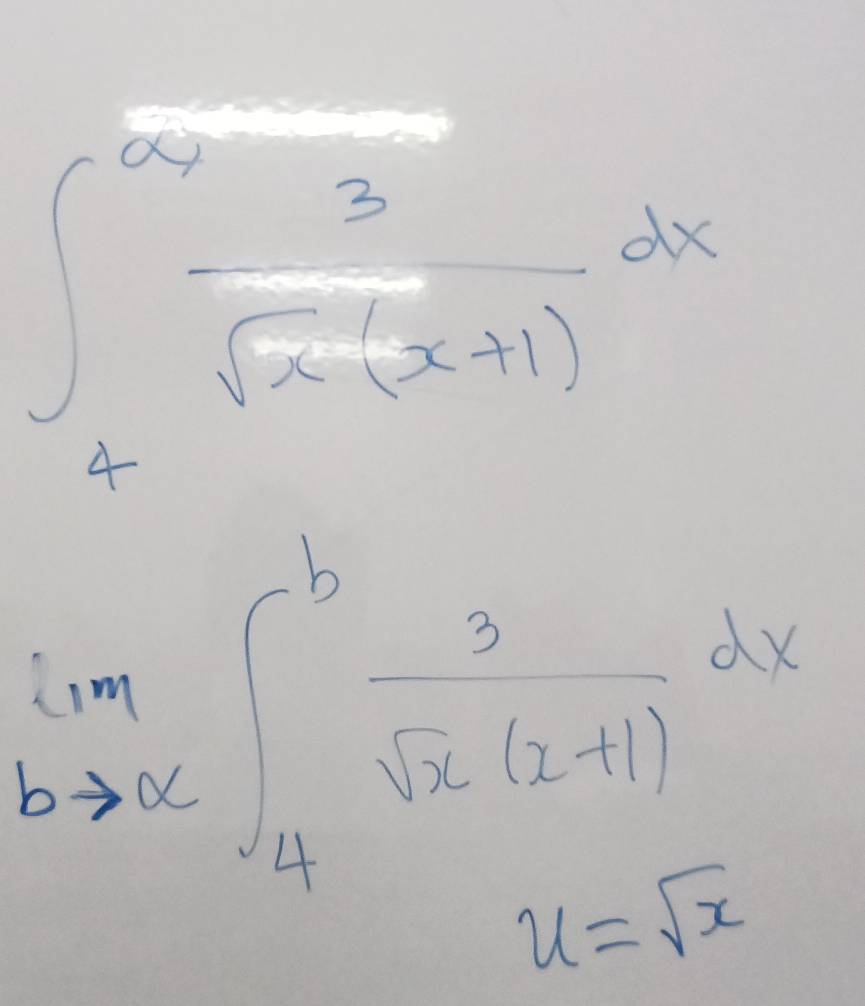 ∫₄^∝ 3/(√x (x+1)) dx
lim b→∝ ∫₄^b 3/(√x (x+1)) dx
u = √x